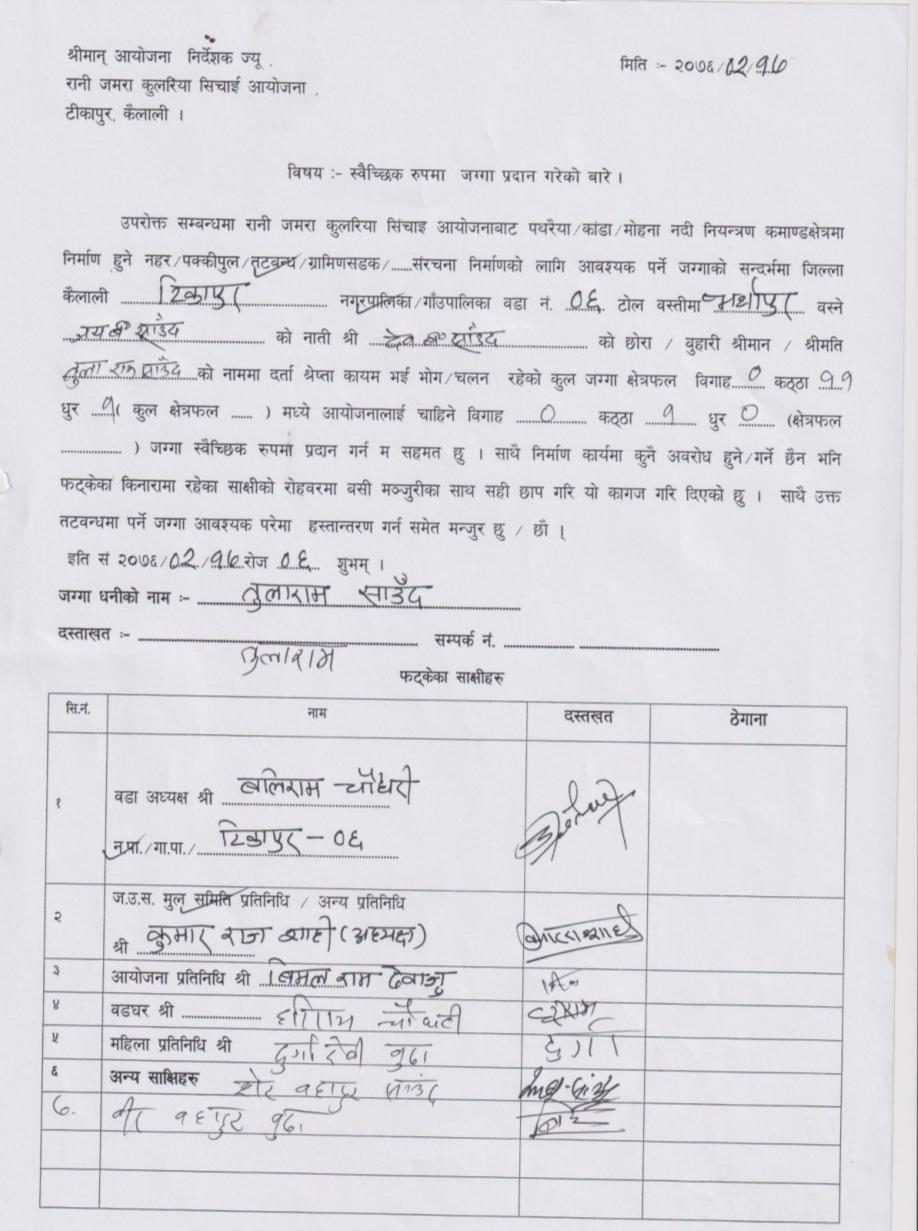 श्रीमान् आयोजना निर्देशक ज्यू ,
मिति :- २०७६/02/१७
रानी जमरा कुलरिया सिचाई आयोजना ,
टीकापुर, कैलाली ।
विषय :- स्वैच्छिक रुपमा जग्गा प्रदान गरेको बारे ।
उपरोक्त सम्बन्धमा रानी जमरा कुलरिया सिंचाइ आयोजनाबाट पथरैया/कांडा/मोहना नदी नियन्त्रण कमाण्डक्षेत्रमा
निर्माण हुने नहर/पक्कीपुल/तटबन्ध/ग्रामिणसडक/......संरचना निर्माणको लागि आवश्यक पर्ने जग्गाको सन्दर्भमा जिल्ला
कैलाली टिकापुर नगरपालिका/गाँउपालिका वडा नं. ०६ टोल वस्तीमा वस्ने
साउँद को नाती श्री देव ब० साउँद को छोरा / बुहारी श्रीमान / श्रीमति
तुला राम साउँद को नाममा दर्ता श्रेष्ता कायम भई भोग/चलन रहेको कुल जग्गा क्षेत्रफल विगाह 0 कठ्ठा ११
धुर १( कुल क्षेत्रफल ...... ) मध्ये आयोजनालाई चाहिने विगाह 0 कठ्ठा १ धुर 0 (क्षेत्रफल
.................. ) जग्गा स्वैच्छिक रुपमा प्रदान गर्न म सहमत छु । साथै निर्माण कार्यमा कुनै अवरोध हुने/गर्ने छैन भनि
फट्केका किनारामा रहेका साक्षीको रोहवरमा वसी मञ्जुरीका साथ सही छाप गरि यो कागज गरि दिएको छु । साथै उक्त
तटवन्धमा पर्ने जग्गा आवश्यक परेमा हस्तान्तरण गर्न समेत मन्जुर छु / छौ ।
इति सं २०७६/02/१७ रोज ०६ शुभम् ।
जग्गा धनीको नाम :- तुलाराम साउँद
दस्ताखत :- सम्पर्क नं.
तुलाराम
फट्केका साक्षीहरु
सि.नं. नाम दस्तखत ठेगाना
१ वडा अध्यक्ष श्री बलिराम चौधरी
न.पा./गा.पा./ टिकापुर - ०६
ज.उ.स. मुल समिति प्रतिनिधि / अन्य प्रतिनिधि
२ श्री कुमार राज शाही (अध्यक्ष)
३ आयोजना प्रतिनिधि श्री बिमल राम देवाजु
४ वडघर श्री चौधरी
५ महिला प्रतिनिधि श्री दुर्गा देवी बुढा दुर्गा
६ अन्य साक्षिहरु शेर बहादुर साउंद
७. वीर बहादुर बुढा